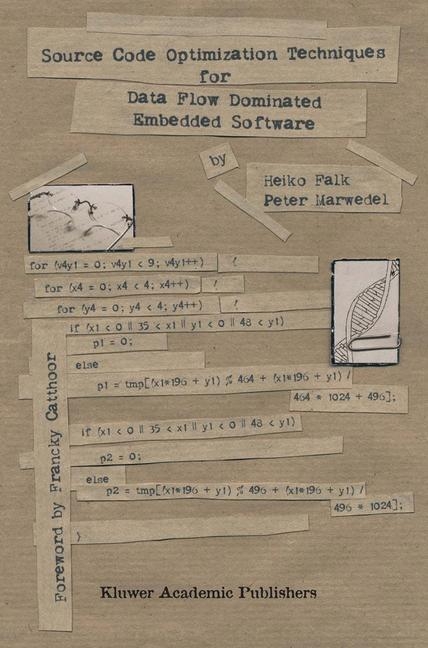 Source Code Optimization Techniques
for
Data Flow Dominated
Embedded Software
by
Heiko Falk
Peter Marwedel
for (v4y1 = 0; v4y1 < 9; v4y1++) {
for (x4 = 0; x4 < 4; x4++) {
for (y4 = 0; y4 < 4; y4++) {
if (x1 < 0 || 35 < x1 || y1 < 0 || 48 < y1)
p1 = 0;
else
p1 = tmp[(x1*196 + y1) % 464 + (x1*196 + y1) /
464 * 1024 + 496];
if (x1 < 0 || 35 < x1 || y1 < 0 || 48 < y1)
p2 = 0;
else
p2 = tmp[(x1*196 + y1) % 496 + (x1*196 + y1) /
496 * 1024];
}
Foreword by Francky Catthoor
Kluwer Academic Publishers